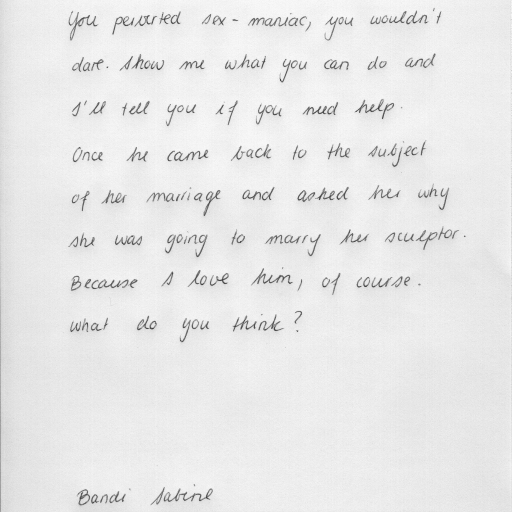 You perverted sex-maniac, you wouldn't
dare. Show me what you can do and
I'll tell you if you need help.
Once he came back to the subject
of her marriage and asked her why
she was going to marry her sculptor.
Because I love him, of course.
What do you think?
Bandi Sabine